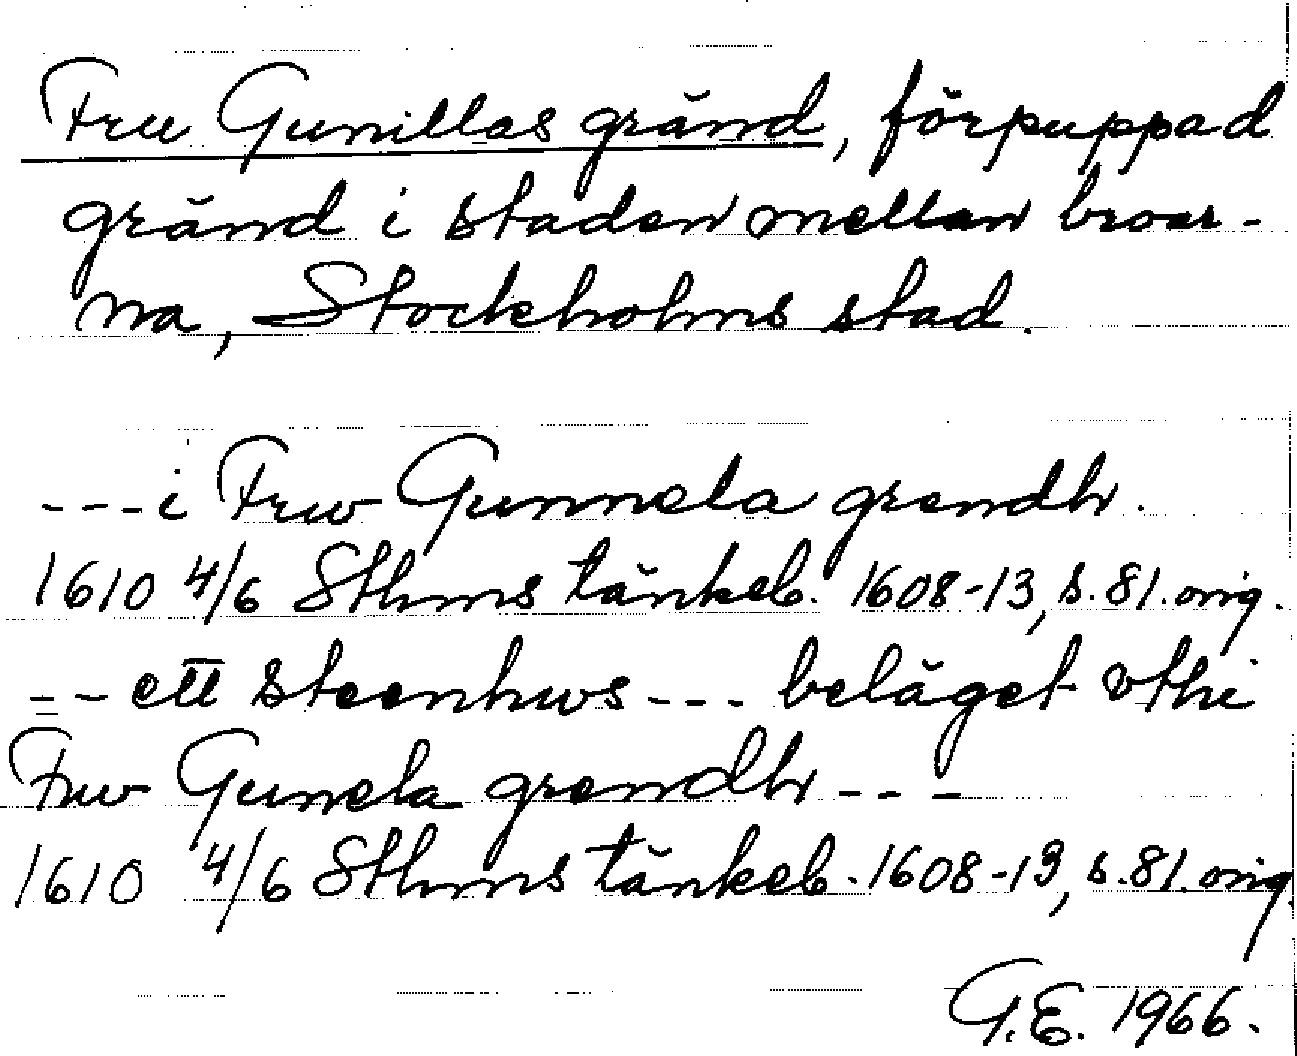 Fru Gunillas gränd, förpuppad
gränd i staden mellan broar-
na, Stockholms stad.
---i Frw Gunnela grendh.
1610 4/6 Sthms tänkeb. 1608-13, s. 81. orig.
-- ett steenhws --- beläget vthi
Frw Gunela grendh ---
1610 4/6 Sthms tänkeb. 1608-13, s. 81. orig.
G.E. 1966.